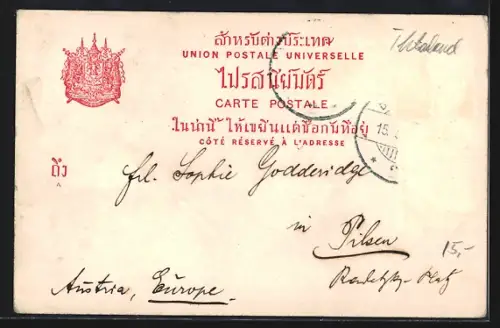 สำหรับต่างประเทศ
UNION POSTALE UNIVERSELLE
ไปรสนียบัตร์
CARTE POSTALE
ในน่านี้ ให้เขยีนแต่ชื่อกับที่อยู่
CÔTÉ RÉSERVÉ À L'ADRESSE
ถึง
A
15.
frl. Sophie Godderidge
in
Pilsen
15,-
Radetzky-Platz
Austria, Europe.